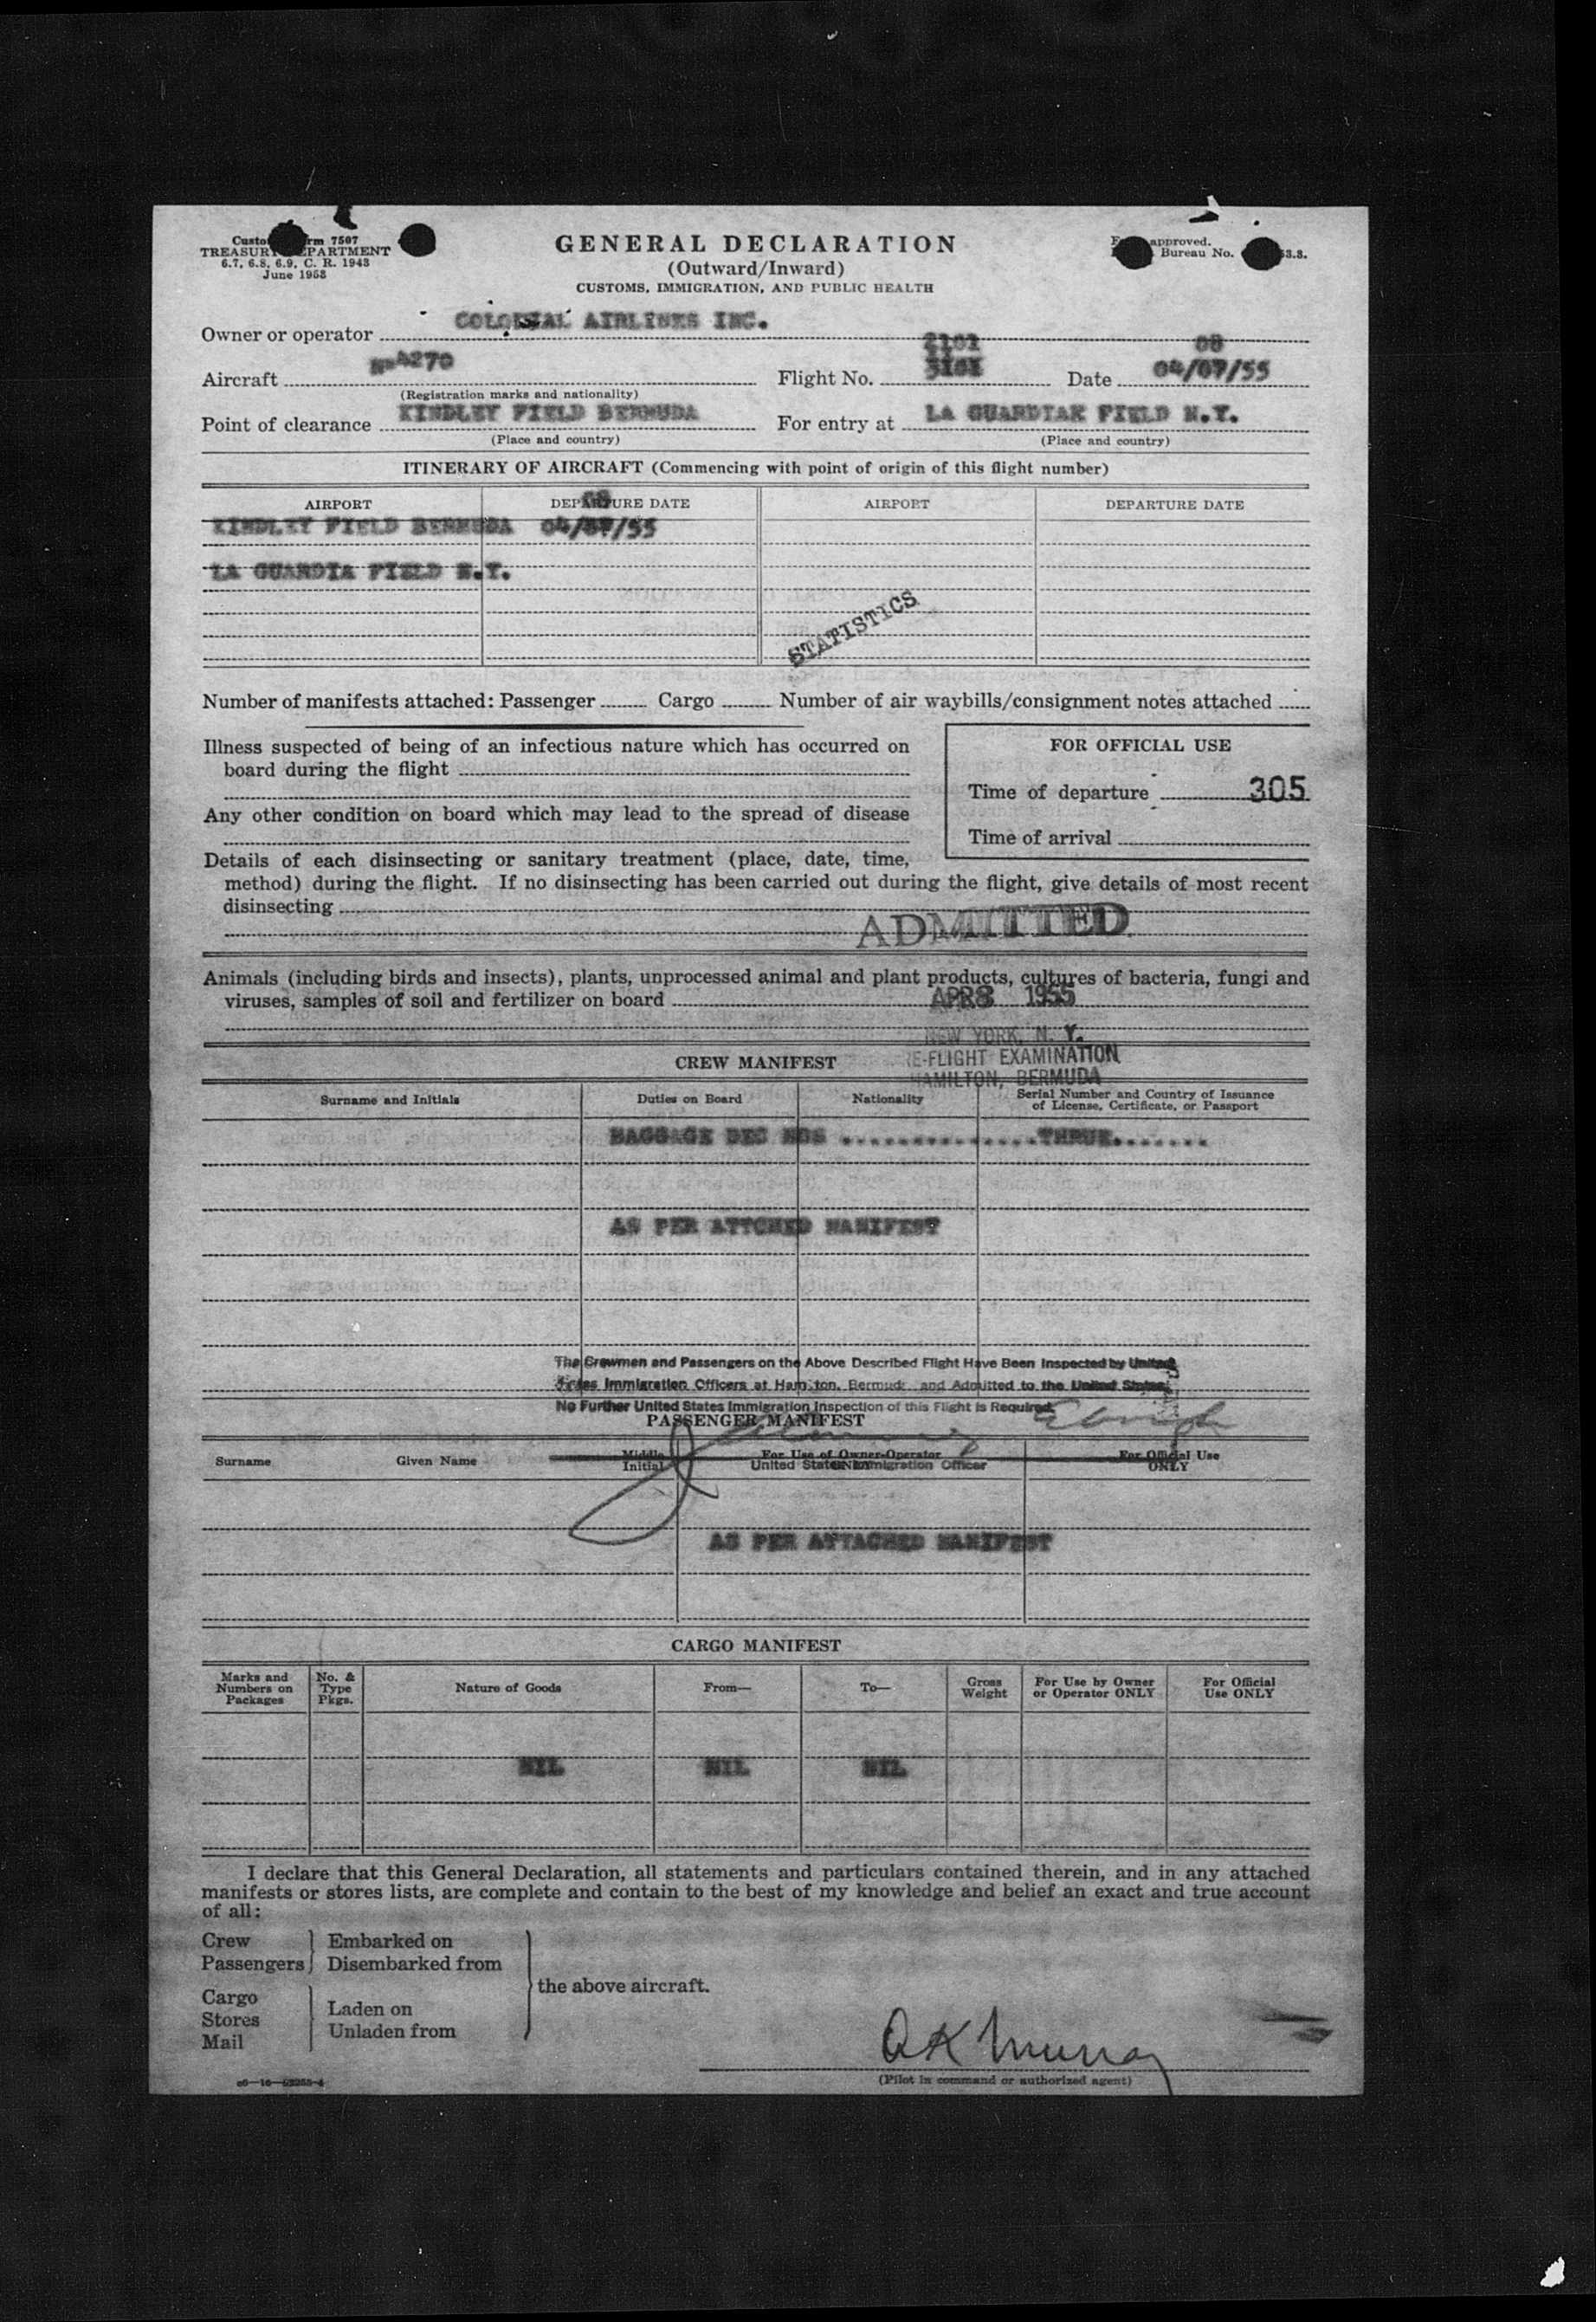 Customs Form 7507
TREASURY DEPARTMENT
6.7, 6.8, 6.9, C. R. 1943
June 1953
GENERAL DECLARATION
(Outward/Inward)
CUSTOMS, IMMIGRATION, AND PUBLIC HEALTH
approved.
Bureau No.
Owner or operator COLONIAL AIRLINES INC.
2101 08
Aircraft N-4270 Flight No. 3101 Date 04/07/55
(Registration marks and nationality)
Point of clearance KINDLEY FIELD BERMUDA For entry at LA GUARDIAK FIELD N.Y.
(Place and country) (Place and country)
ITINERARY OF AIRCRAFT (Commencing with point of origin of this flight number)
AIRPORT DEPARTURE DATE AIRPORT DEPARTURE DATE
08
KINDLEY FIELD BERMUDA 04/07/55
LA GUARDIA FIELD N.Y.
STATISTICS
Number of manifests attached: Passenger Cargo Number of air waybills/consignment notes attached
Illness suspected of being of an infectious nature which has occurred on
board during the flight
FOR OFFICIAL USE
Time of departure 305
Time of arrival
Any other condition on board which may lead to the spread of disease
Details of each disinsecting or sanitary treatment (place, date, time,
method) during the flight. If no disinsecting has been carried out during the flight, give details of most recent
disinsecting
ADMITTED
Animals (including birds and insects), plants, unprocessed animal and plant products, cultures of bacteria, fungi and
viruses, samples of soil and fertilizer on board
APR 8 1955
NEW YORK, N. Y.
E-FLIGHT EXAMINATION
HAMILTON, BERMUDA
CREW MANIFEST
Surname and Initials Duties on Board Nationality Serial Number and Country of Issuance
of License, Certificate, or Passport
BAGGAGE DEC NOS ..............THRUE.......
AS PER ATTCHED MANIFEST
The Crewmen and Passengers on the Above Described Flight Have Been Inspected by United
States Immigration Officers at Hamilton, Bermuda and Admitted to the United States.
No Further United States Immigration Inspection of this Flight is Required.
PASSENGER MANIFEST
Surname Given Name Middle Initial For Use of Owner-Operator For Official Use
ONLY
United States Immigration Officer
AS PER ATTACHED MANIFEST
CARGO MANIFEST
Marks and Numbers on Packages No. & Type Pkgs. Nature of Goods From— To— Gross Weight For Use by Owner or Operator ONLY For Official Use ONLY
NIL NIL NIL
I declare that this General Declaration, all statements and particulars contained therein, and in any attached
manifests or stores lists, are complete and contain to the best of my knowledge and belief an exact and true account
of all:
Crew Embarked on
Passengers Disembarked from
the above aircraft.
Cargo
Laden on
Stores
Unladen from
Mail
OK Murray
(Pilot in command or authorized agent)